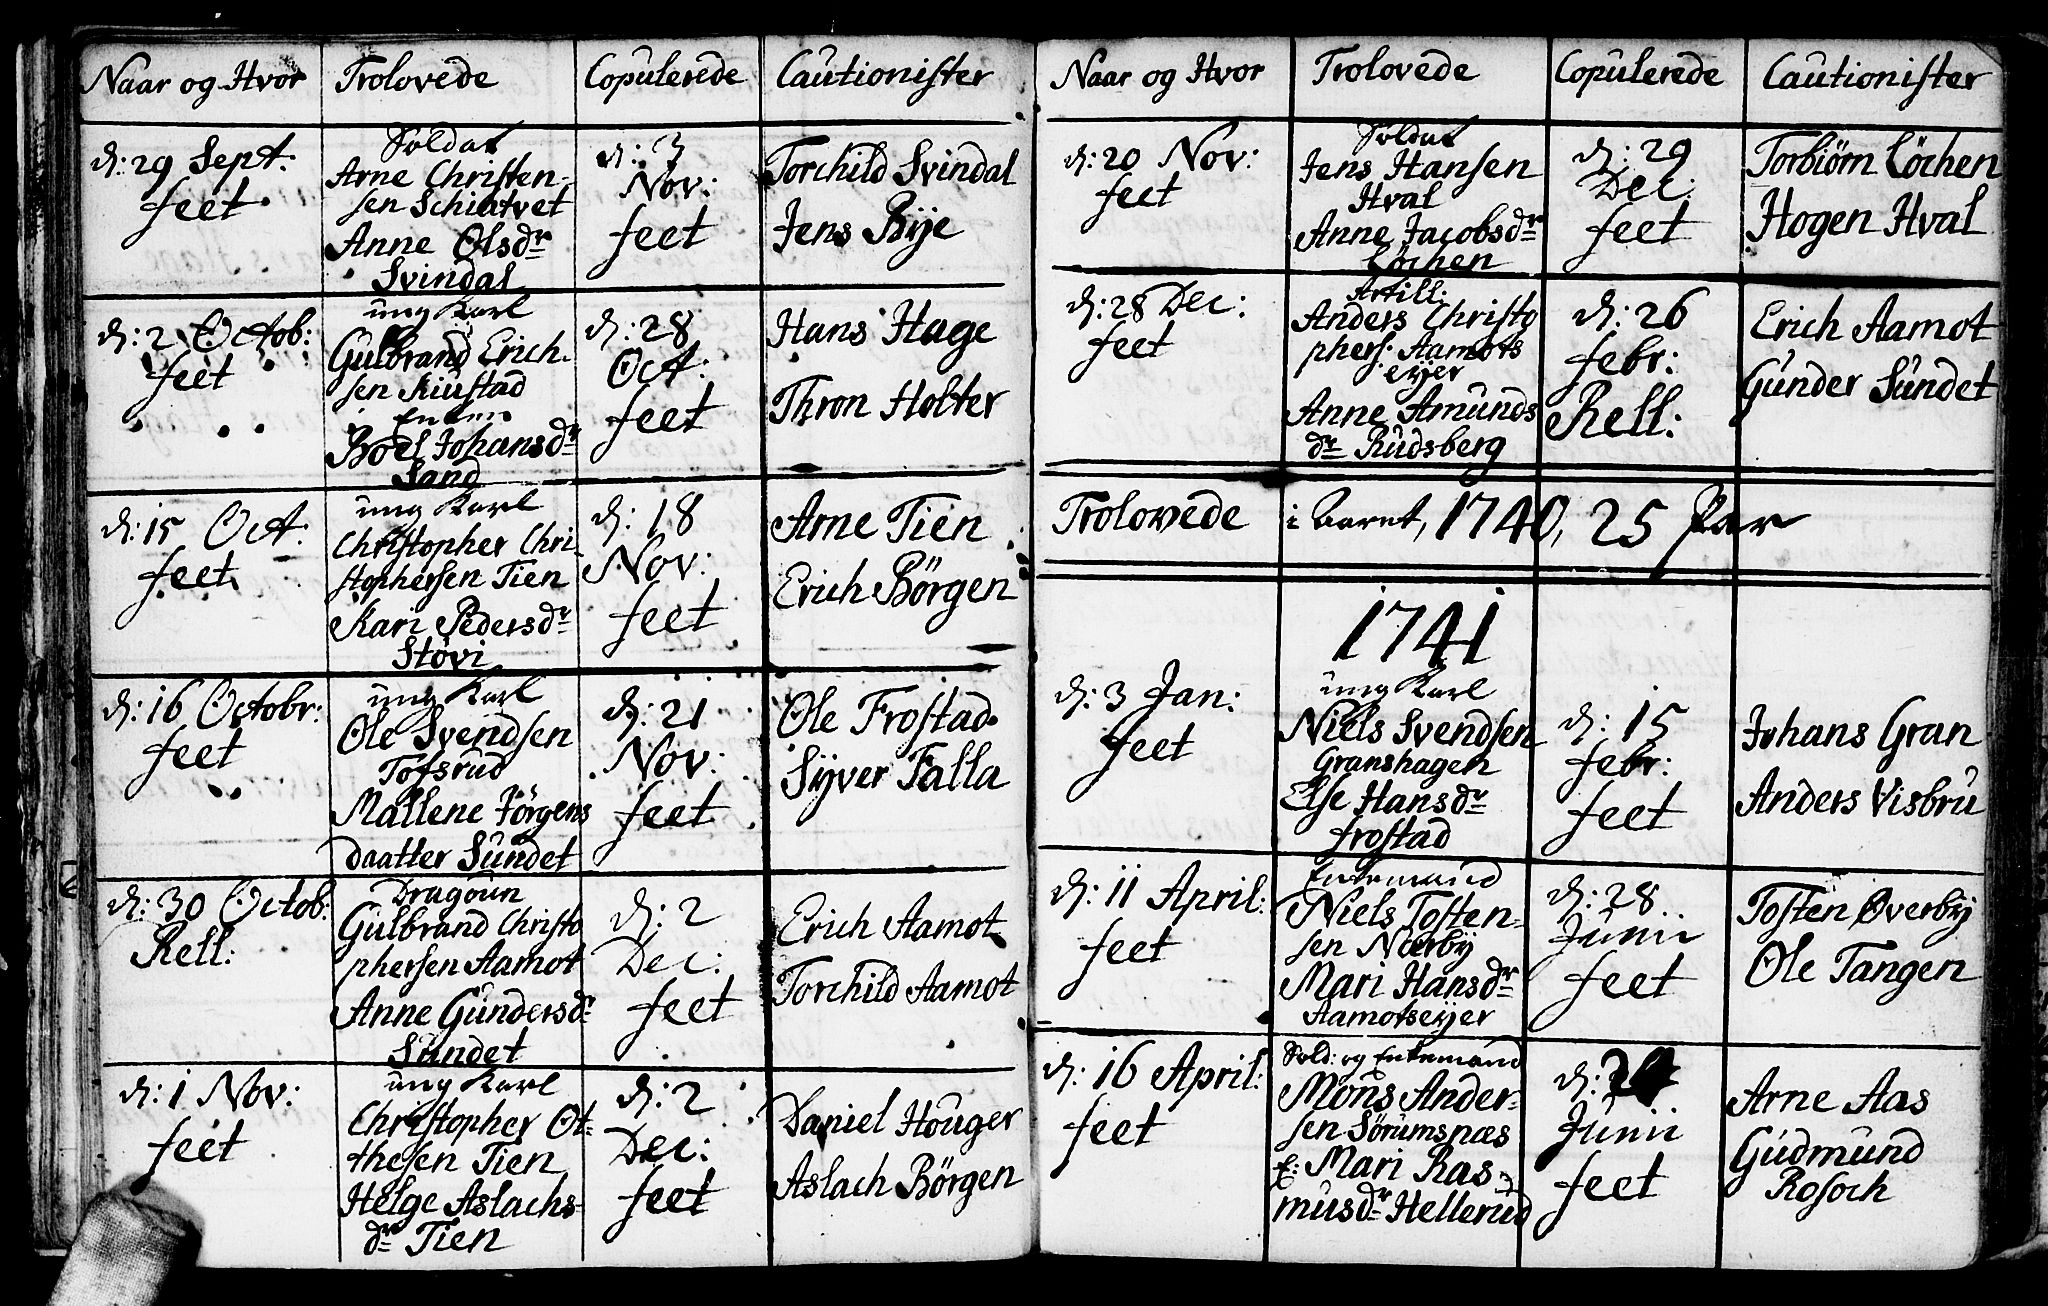 Naar og Hvor Trolovede Copulerede Cautionister
d: 29 Sept:
feet
Soldat
Arne Christen-
sen Schiatvet
Anne Olsdr
Svindal
d: 3
Nov:
feet
Torchild Svindal
Jens Bÿe
d: 2 Octob:
feet
ung Karl
Gulbrand Erich-
sen Riustad
Enken
Boel Johansdr
Sand
d: 28
Oct:
feet
Hans Hage
Thron Holter
d: 15 Oct:
feet
ung Karl
Christopher Chri-
stophersen Tien
Kari Pedersdr
Støvi
d: 18
Nov:
feet
Arne Tien
Erich Børgen
d: 16 Octobr:
feet
ung Karl
Ole Svendsen
Tofsrud
Mallene Jørgens
daatter Sundet
d: 21
Nov:
feet
Ole Frostad
Sÿver Falla
d: 30 Octob:
Rell:
Dragoun
Gulbrand Christo
phersen Aamot
Anne Gundersdr
Sundet
d: 2
Dec:
feet
Erich Aamot
Torchild Aamot
d: 1 Nov:
feet
ung Karl
Christopher Ot-
thesen Tien
Helge Aslachs-
dr Tien
d: 2
Dec:
feet
Daniel Houger
Aslach Børgen
Naar og Hvor Trolovede Copulerede Cautionister
d: 20 Nov:
feet
Soldat
Jens Hansen
Hval
Anne Jacobsdr
Løchen
d: 29
Dec:
feet
Torbiørn Løchen
Hogen Hval
d: 28 Dec:
feet
Artill:
Anders Christo
phers: Aamots
eÿer
Anne Amunds
dr Rudsberg
d: 26
febr:
Rell:
Erich Aamot
Gunder Sundet
Trolovede i Aaret, 1740, 25 Par
1741
d: 3 Jan:
feet
ung Karl
Niels Svendsen
Granshagen
Else Hansdr
frostad
d: 15
febr:
feet
Johans Gran
Anders Visbru
d: 11 April:
feet
Enkemand
Niels Tosten-
sen Nærbÿ
Mari Hansdr
Aamotseÿer
d: 28
Junii
feet
Tosten Øverbÿ
Ole Tangen
d: 16 April:
feet
Sold: og Enkemand
Mons Ander-
sen Sørumsnæs
E: Mari Ras-
musdr Hellerud
d:
Junii
feet
Arne Aas
Gudmund
Rosock